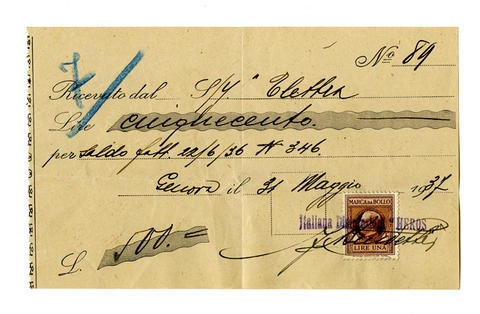 7/
No 89
Ricevuto dal S/Y "Elettra
Lire cinquecento.
per saldo fatt. 22/6/36 N 346.
Genova il 31 Maggio 1937
MARCA DA BOLLO
Italiana HEROS
LIRE UNA
L. 500.=